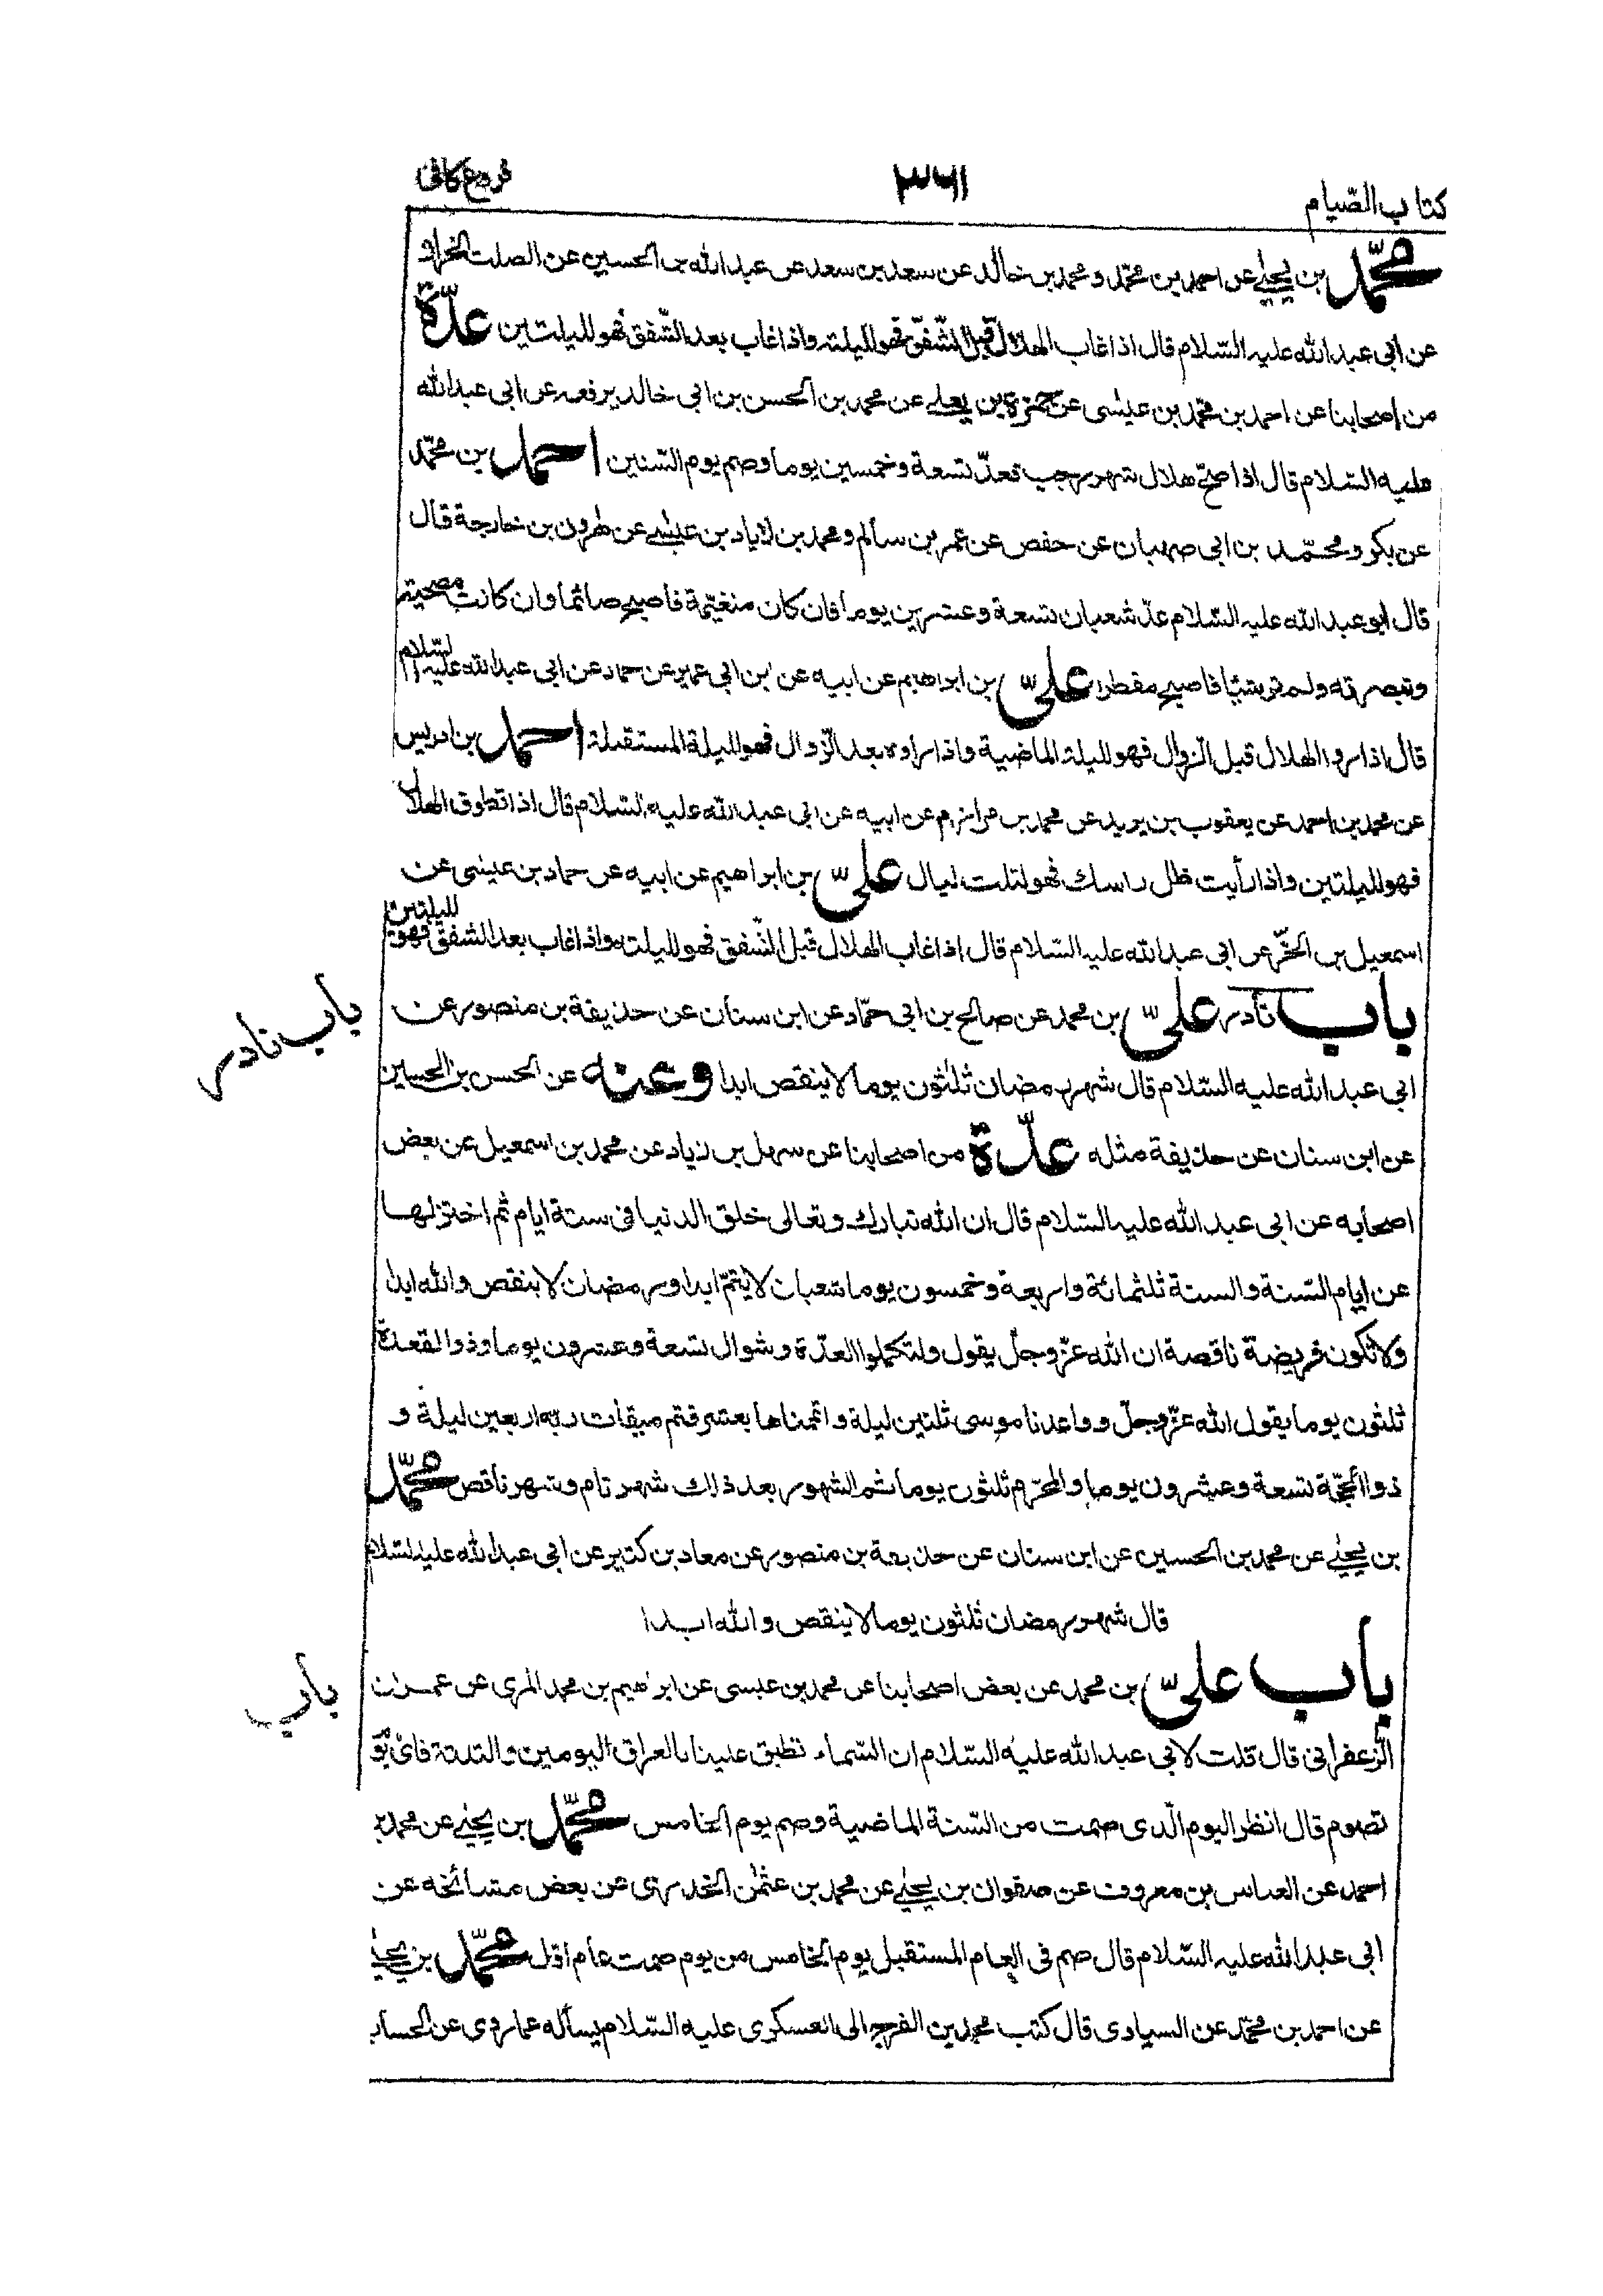 كتاب الصّيام ٣٦١ فروع كافى
محمّد بن يحيٰى عن احمد بن محمّد و محمد بن خالد عن سعد بن سعد عن عبد الله بن الحسين عن الصلت الخزاز
عن ابى عبد الله عليه السّلام قال اذا غاب الهلال قبل الشّفق فهو لليلته واذا غاب بعد الشّفق فهو لليلتين عدّة
من اصحابنا عن احمد بن محمّد بن عيسٰى عن حمزة بن يعلى عن محمد بن الحسن بن ابى خالد يرفعه عن ابى عبد الله
عليه السّلام قال اذا صحّ هلال شهر رجب فعدّ تسعة وخمسين يوما وصم يوم السّتين احمد بن محمّد
عن بكر و محمّد بن ابى صهبان عن حفص عن عمر بن سالم و محمد بن زياد بن عيسٰى عن هٰرون بن خارجة قال
قال ابو عبد الله عليه السّلام عدّ شعبان تسعة وعشرين يوما فان كان متغيّمة فاصبح صائما وان كانت مصحية
وتبصرته ولم تر شيئا فاصبح مفطرا علىّ بن ابراهيم عن ابيه عن ابن ابى عمير عن حماد عن ابى عبد الله عليه السّلام
قال اذا راوا الهلال قبل الزوال فهو لليلة الماضية واذا راوه بعد الزّوال فهو لليلة المستقبلة احمد بن ادريس
عن محمد بن احمد عن يعقوب بن يزيد عن محمد بن مرازم عن ابيه عن ابى عبد الله عليه السّلام قال اذا تطوق الهلال
فهو لليلتين واذا رأيت ظل راسك فهو لثلت ليال علىّ بن ابراهيم عن ابيه عن حماد بن عيسٰى عن
اسمعيل بن الحرّ عن ابى عبد الله عليه السّلام قال اذا غاب الهلال قبل الشّفق فهو لليلته واذا غاب بعد الشفق فهو لليلتين
باب نادر علىّ بن محمد عن صالح بن ابى حمّاد عن ابن سنان عن حذيفة بن منصور عن
باب نادر
ابى عبد الله عليه السّلام قال شهر رمضان ثلثون يوما لا ينقص ابدا وعنه عن الحسن بن الحسين
عن ابن سنان عن حذيفة مثله عدّة من اصحابنا عن سهل بن زياد عن محمد بن اسمعيل عن بعض
اصحابه عن ابى عبد الله عليه السّلام قال ان الله تبارك وتعالى خلق الدنيا فى ستة ايام ثم اختزلها
عن ايام السّنة والسنة ثلثمائة واربعة وخمسون يوما شعبان لا يتمّ ابدا ورمضان لا ينقص والله ابدا
ولا تكون فريضة ناقصة ان الله عزّ وجلّ يقول ولتكملوا العدّة وشوال تسعة وعشرون يوما وذو القعدة
ثلثون يوما يقول الله عزّ وجلّ وواعدنا موسى ثلثين ليلة واتممناها بعشر فتم ميقات ربه اربعين ليلة و
ذو الحجّة تسعة وعشرون يوما والمحرّم ثلثون يوما ثم الشهور بعد ذلك شهر تام وشهر ناقص محمّد
بن يحيٰى عن محمد بن الحسين عن ابن سنان عن حذيفة بن منصور عن معاد بن كثير عن ابى عبد الله عليه السّلام
قال شهر رمضان ثلثون يوما لا ينقص والله ابدا
باب علىّ بن محمد عن بعض اصحابنا عن محمد بن عيسى عن ابرٰهيم بن محمد المزى عن عمران
باب
الزّعفرانى قال قلت لابى عبد الله عليه السّلام ان السّماء تطبق علينا بالعراق اليومين والثلثة فاىّ يوم
تصوم قال انظر اليوم الّذى صمت من السّنة الماضية وصم يوم الخامس محمّد بن يحيٰى عن محمد بن
احمد عن العباس بن معروف عن صفوان بن يحيٰى عن محمد بن عثمٰن الخدرى عن بعض مشائخه عن
ابى عبد الله عليه السّلام قال صم فى العام المستقبل يوم الخامس من يوم صمت عام اوّل محمّد بن يحيٰى
عن احمد بن محمّد عن السيارى قال كتب محمد بن الفرج الى العسكرى عليه السّلام يسأله عما روى عن الحساب